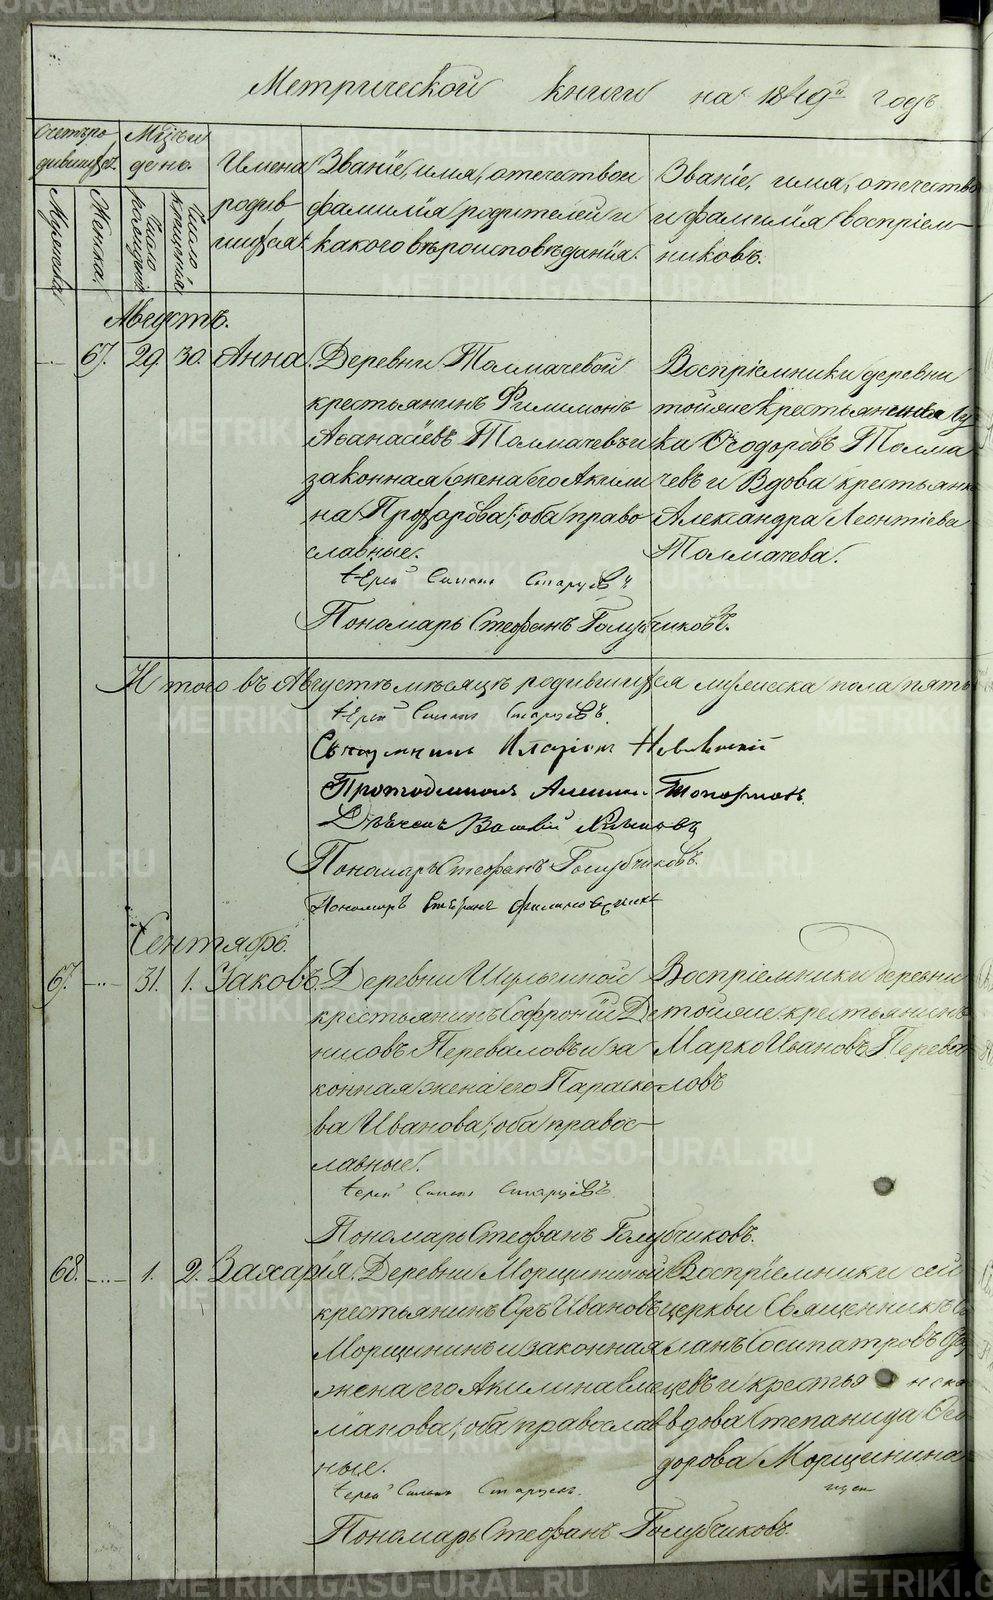 Метрической книги на 1849й годъ
Счетъ родившихся. Мѣсяцъ и день.
Имена родившихся.
Званіе, имя, отечество и фамилія родителей и какого вѣроисповѣданія.
Званіе, имя, отечество и фамилія воспріемниковъ.
Мужеска
Женска.
Число рожденія
Число крещенія
Августъ.
67. 29. 30. Анна.
Деревни Толмачевой
крестьянинъ Филимонъ
Аѳанасіевъ Толмачевъ и
законная жена его Акили
на Прохорова; оба право
славные.
Воспріемники деревни
тойже крестьянинъ
ка Ѳеодоровъ Толма
чевъ и Вдова крестьянк
Александра Леонтіева
Толмачева.
Іерей Симеонъ Старцевъ
Пономарь Стефанъ Голубчиковъ.
Итого въ Августѣ мѣсяцѣ родившихся мужеска пола пять
Іерей Симеонъ Старцевъ.
Священникъ Иларіонъ
Протодиаконъ
Дьячекъ Василій
Пономарь Стефанъ Голубчиковъ.
Пономарь Стефанъ
Сентябрь.
67. 31. 1. Іаковъ.
Деревни Шульгиной
крестьянинъ Софроній Де
нисовъ Переваловъ и за
конная жена его Параске
ва Иванова; оба правос-
лавные.
Воспріемники деревни
тойже крестьянинъ
Марко Ивановъ Перева
ловъ
Іерей Симеонъ Старцевъ.
Пономарь Стефанъ Голубчиковъ.
68. 1. 2. Захарія.
Деревни Морщининой
крестьянинъ Ивановъ
Морщининъ и законная
жена его Акилина
манова; оба православ
ные.
Воспріемники сей
церкви Священникъ
Сосипатровъ
цевъ и крестья нска
вдова Степанида Ѳео
дорова Морщинина
Іерей Симеонъ Старцевъ.
Пономарь Стефанъ Голубчиковъ.
METRIKI.GASO-URAL.RU